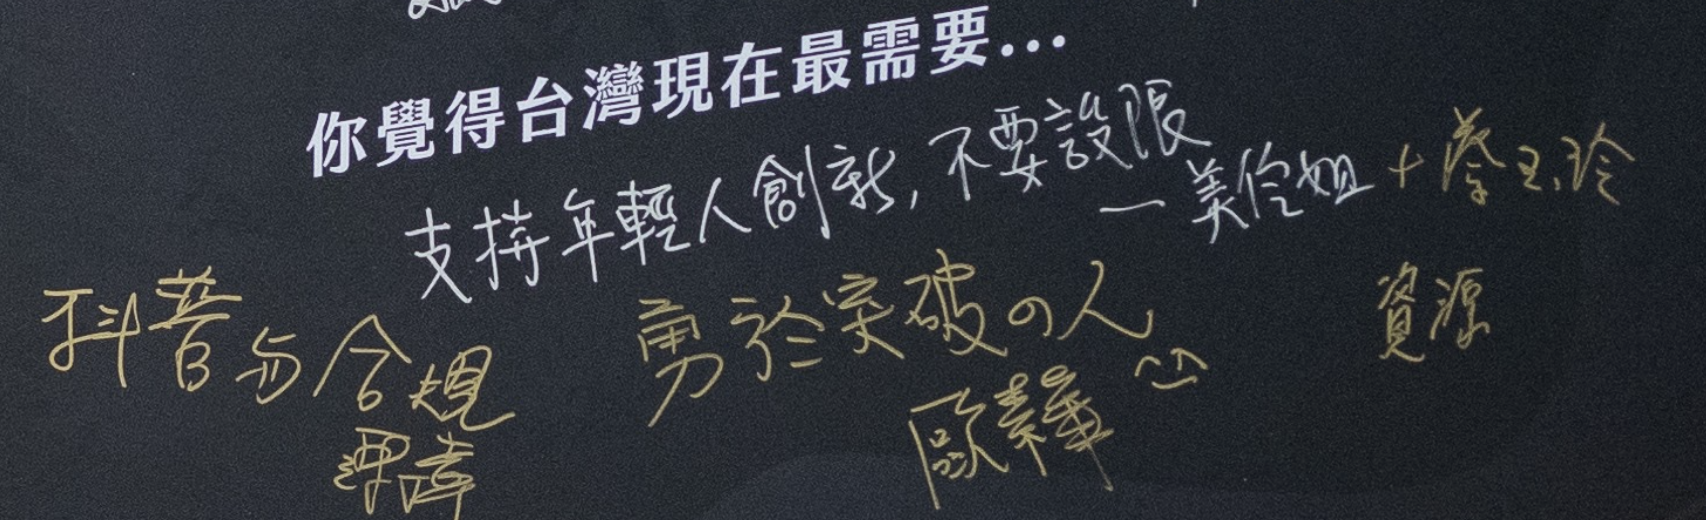 你覺得台灣現在最需要...
支持年輕人創新,不要設限
一美伶姐+蔡玉玲
資源
勇於突破の人
歐素華
合規